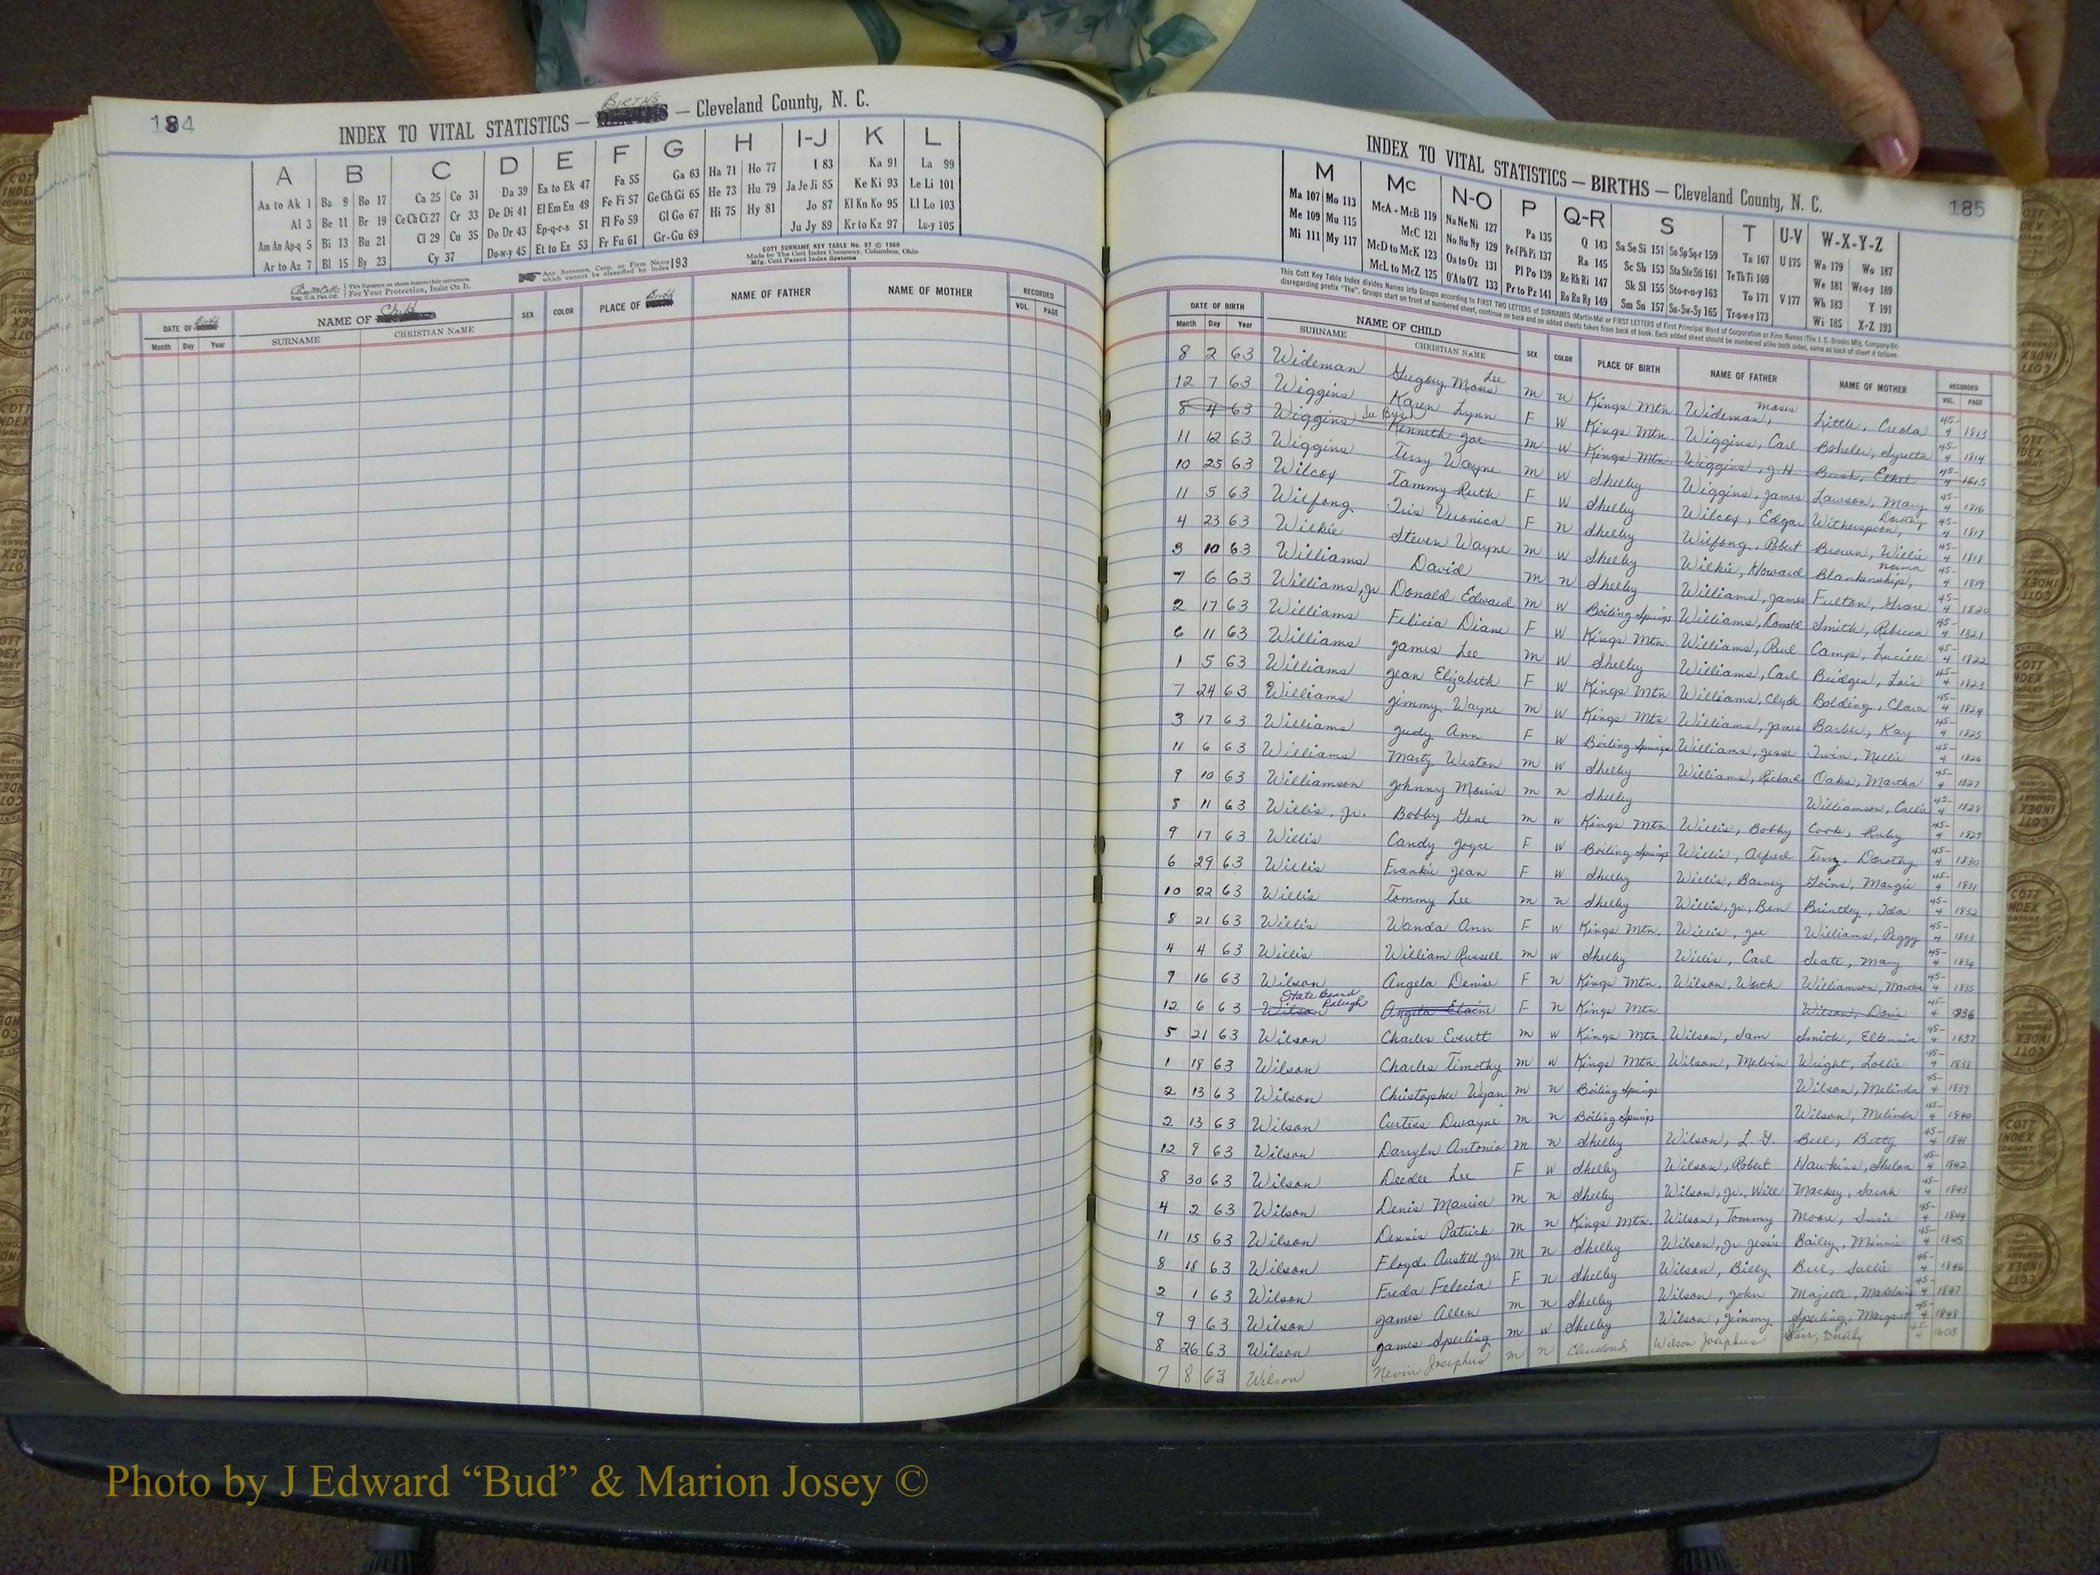 184
INDEX TO VITAL STATISTICS — BIRTHS — Cleveland County, N. C.
A B C D E F G H I-J K L
Aa to Ak 1 Ba 9 Bo 17 Ca 25 Co 31 Da 39 Ea to Ek 47 Fa 55 Ga 63 Ha 71 Ho 77 I 83 Ka 91 La 99
Al 3 Be 11 Br 19 Ce Ch Ci 27 Cr 33 De Di 41 El Em En 49 Fe Fi 57 Ge Gh Gi 65 He 73 Hu 79 Ja Je Ji 85 Ke Ki 93 Le Li 101
Am An Ap-q 5 Bi 13 Bu 21 Cl 29 Cu 35 Do Dr 43 Ep-q-r-s 51 Fl Fo 59 Gl Go 67 Hi 75 Hy 81 Jo 87 Kl Kn Ko 95 Ll Lo 103
Ar to Az 7 Bl 15 By 23 Cy 37 Du-w-y 45 Et to Ez 53 Fr Fu 61 Gr-Gu 69 Ju Jy 89 Kr to Kz 97 Lu-y 105
COTT SURNAME KEY TABLE No. 97 © 1960
Made by The Cott Index Company, Columbus, Ohio
Mfg. Cott Patent Index Systems
This signature on sheets insures clear conveyances.
For Your Protection, Insist On It.
Any Surname, Corp. or Firm Name which cannot be classified by Index 193
DATE OF Birth NAME OF Child SEX COLOR PLACE OF Birth NAME OF FATHER NAME OF MOTHER RECORDED
Month Day Year SURNAME CHRISTIAN NAME VOL. PAGE
185
INDEX TO VITAL STATISTICS — BIRTHS — Cleveland County, N. C.
M Mc N-O P Q-R S T U-V W-X-Y-Z
Ma 107 Mo 113 McA - McB 119 Na Ne Ni 127 Pa 135 Q 143 Sa Se Si 151 So Sp Sq-r 159 Ta 167 U 175 Wa 179 Wo 187
Me 109 Mu 115 McC 121 No Nu Ny 129 Pe-f Ph Pi 137 Ra 145 Sc Sh 153 Sta Ste Sti 161 Te Th Ti 169 We 181 Wr-u-y 189
Mi 111 My 117 McD to McK 123 Oa to Oz 131 Pl Po 139 Re Rh Ri 147 Sk Sl 155 Sto-r-u-y 163 To 171 V 177 Wh 183 Y 191
McL to McZ 125 O'A to O'Z 133 Pr to Pz 141 Ro Ru Ry 149 Sm Sn 157 Su-Sw-Sy 165 Tr-u-w-y 173 Wi 185 X-Z 193
DATE OF BIRTH NAME OF CHILD SEX COLOR PLACE OF BIRTH NAME OF FATHER NAME OF MOTHER RECORDED
Month Day Year SURNAME CHRISTIAN NAME VOL. PAGE
8 2 63 Wideman Gregory Moses Lee m n Kings Mtn Wideman, Moses Little, Creola 45-4 1813
12 7 63 Wiggins Karen Lynn F w Kings Mtn. Wiggins, Carl Boheler, Syretta 45-4 1814
8 4 63 Wiggins Kenneth Joe m w Kings Mtn. Wiggins, J. H. Bush, Ethel 45-4 1815
11 12 63 Wiggins Terry Wayne m w Shelby Wiggins, James Lawson, Mary 45-4 1816
10 25 63 Wilcox Tammy Ruth F w Shelby Wilcox, Edgar Witherspoon, Dorothy 45-4 1817
11 5 63 Wilfong Iris Veronica F n Shelby Wilfong, Robert Brown, Willie 45-4 1818
4 23 63 Wilkie Steven Wayne m w Shelby Wilkie, Howard Blankenship, Norma 45-4 1819
3 10 63 Williams David m n Shelby Williams, James Fulton, Grace 45-4 1820
7 6 63 Williams, Jr Donald Edward m w Boiling Springs Williams, Donald Smith, Rebecca 45-4 1821
2 17 63 Williams Felicia Diane F w Kings Mtn. Williams, Paul Camp, Lucille 45-4 1822
6 11 63 Williams James Lee m w Shelby Williams, Carl Bridges, Lois 45-4 1823
1 5 63 Williams Jean Elizabeth F w Kings Mtn Williams, Clyde Bolding, Clara 45-4 1824
7 24 63 Williams Jimmy Wayne m w Kings Mtn Williams, James Barber, Kay 45-4 1825
3 17 63 Williams Judy Ann F w Boiling Springs Williams, Jesse Irvin, Nellie 45-4 1826
11 6 63 Williams Marty Weston m w Shelby Williams, Richard Oaks, Martha 45-4 1827
9 10 63 Williamson Johnny Morris m n Shelby Williamson, Callie 45-4 1828
8 11 63 Willis, Jr. Bobby Gene m w Kings Mtn Willis, Bobby Cook, Ruby 45-4 1829
9 17 63 Willis Candy Joyce F w Boiling Springs Willis, Alfred Terry, Dorothy 45-4 1830
6 29 63 Willis Frankie Jean F w Shelby Willis, Barney Goins, Margie 45-4 1831
10 22 63 Willis Tommy Lee m n Shelby Willis, Jr, Ben Brintley, Ida 45-4 1832
8 21 63 Willis Wanda Ann F w Kings Mtn. Willis, Joe Williams, Peggy 45-4 1833
4 4 63 Willis William Russell m w Shelby Willis, Carl Seate, Mary 45-4 1834
9 16 63 Wilson Angela Denise F n Kings Mtn. Wilson, Worth Williamson, Martha 45-4 1835
State Board Raleigh
12 6 63 Wilson Angela Elaine F n Kings Mtn. Wilson, Doris 45-4 1836
5 21 63 Wilson Charles Everett m w Kings Mtn Wilson, Sam Smith, 45-4 1837
1 18 63 Wilson Charles Timothy m w Kings Mtn. Wilson, Melvin Wright, Lollie 45-4 1838
2 13 63 Wilson Christopher Wyan m n Boiling Springs Wilson, Melinda 45-4 1839
2 13 63 Wilson Curtiss Dwayne m n Boiling Springs Wilson, Melinda 45-4 1840
12 9 63 Wilson Darryln Antonio m n Shelby Wilson, L. G. Bell, Betty 45-4 1841
8 30 63 Wilson Deedee Lee F w Shelby Wilson, Robert Hawkins, Shelon 45-4 1842
4 2 63 Wilson Denis Maurice m n Shelby Wilson, Jr., Will Mackey, Sarah 45-4 1843
11 15 63 Wilson Dennis Patrick m n Kings Mtn. Wilson, Tommy Moore, Susie 45-4 1844
8 18 63 Wilson Floyd Austell Jr. m n Shelby Wilson, Jr. Jessie Bailey, Minnie 45-4 1845
2 1 63 Wilson Freda Felecia F n Shelby Wilson, Billy Bell, Sallie 45-4 1846
9 9 63 Wilson James Allen m n Shelby Wilson, John Majette, Madelaine 45-4 1847
8 26 63 Wilson James Sperling m w Shelby Wilson, Jimmy Sperling, Margaret 45-4 1848
7 8 63 Wilson Nevin Josephus m n Cleveland Wilson Josephus 45-4 1608
Photo by J Edward “Bud” & Marion Josey ©